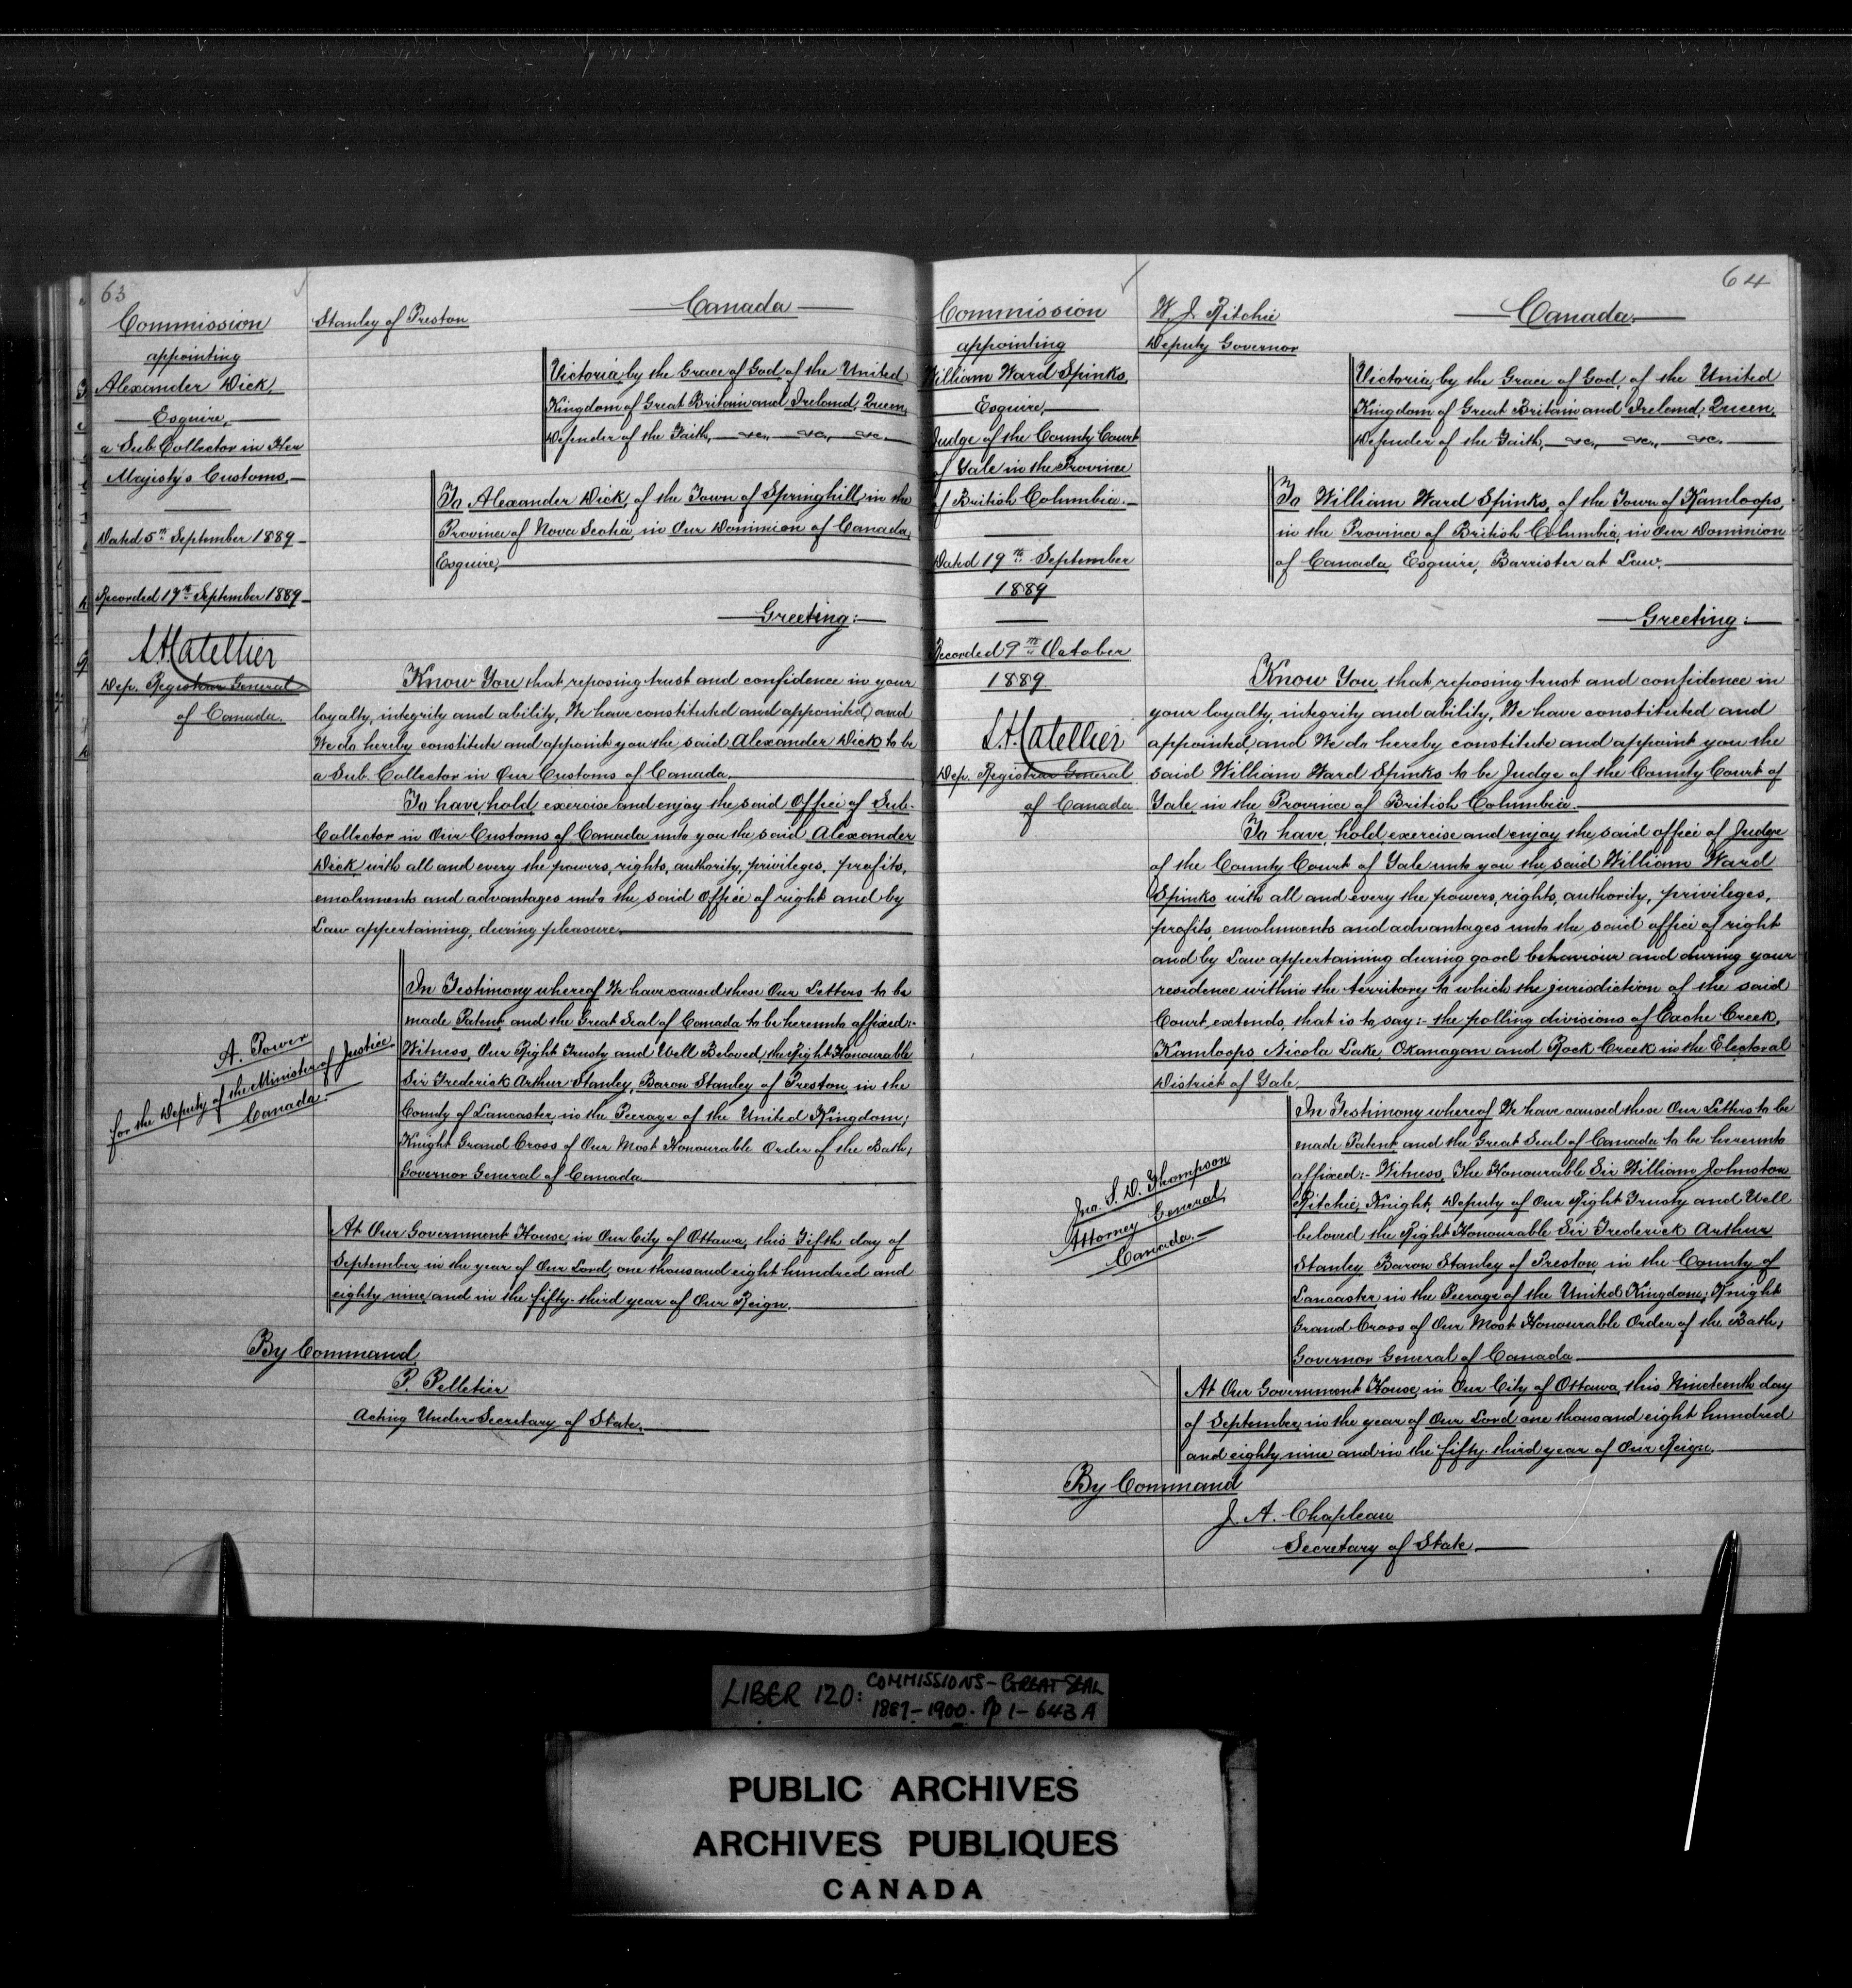 63
Commission
appointing
Alexander Dick,
Esquire,
a Sub. Collector in Her
Majesty's Customs.
Dated 5th September 1889
Recorded 17th September 1889
Dep. Registrar General
of Canada.
Stanley of Preston
Canada
Victoria, by the Grace of God, of the United
Kingdom of Great Britain and Ireland, Queen,
Defender of the Faith, &c., &c., &c.
To Alexander Dick, of the Town of Springhill, in the
Province of Nova Scotia, in Our Dominion of Canada,
Esquire,
Greeting:
Know You that, reposing trust and confidence in your
loyalty, integrity and ability, We have constituted and appointed, and
We do hereby constitute and appoint you the said Alexander Dick to be
a Sub. Collector in Our Customs of Canada.
To have, hold, exercise and enjoy the said Office of Sub-
Collector in Our Customs of Canada unto you the said Alexander
Dick with all and every the powers, rights, authority, privileges, profits,
emoluments and advantages unto the said Office of right and by
Law appertaining, during pleasure.
In Testimony whereof We have caused these Our Letters to be
made Patent, and the Great Seal of Canada to be hereunto affixed:-
Witness, Our Right Trusty and Well Beloved, the Right Honourable
Sir Frederick Arthur Stanley, Baron Stanley of Preston, in the
County of Lancaster, in the Peerage of the United Kingdom;
Knight Grand Cross of Our Most Honourable Order of the Bath;
Governor General of Canada.
A. Power
for the Deputy of the Minister of Justice
Canada.
At Our Government House, in Our City of Ottawa, this Fifth day of
September in the year of Our Lord, one thousand eight hundred and
eighty nine, and in the fifty-third year of Our Reign.
By Command,
P. Pelletier
Acting Under-Secretary of State.
64
Commission
appointing
William Ward Spinks,
Esquire,
Judge of the County Court
of Yale in the Province
of British Columbia.
Dated 19th September
1889
Recorded 9th October
1889
Dep. Registrar General
of Canada.
W. J. Ritchie
Deputy Governor
Canada
Victoria, by the Grace of God, of the United
Kingdom of Great Britain and Ireland, Queen,
Defender of the Faith, &c., &c., &c.
To William Ward Spinks, of the Town of Kamloops,
in the Province of British Columbia, in Our Dominion
of Canada Esquire, Barrister at Law.
Greeting:
Know You, that, reposing trust and confidence in
your loyalty, integrity and ability, We have constituted and
appointed, and We do hereby constitute and appoint you the
said William Ward Spinks to be Judge of the County Court of
Yale, in the Province of British Columbia.
To have, hold, exercise and enjoy the said office of Judge
of the County Court of Yale unto you the said William Ward
Spinks with all and every the powers, rights, authority, privileges,
profits, emoluments and advantages unto the said office of right
and by Law appertaining during good behaviour and during your
residence within the territory to which the jurisdiction of the said
Court extends, that is to say:- the polling divisions of Cache Creek,
Kamloops, Nicola Lake, Okanagan and Rock Creek in the Electoral
District of Yale
In Testimony whereof We have caused these Our Letters to be
made Patent, and the Great Seal of Canada to be hereunto
affixed:- Witness, The Honourable Sir William Johnston
Ritchie, Knight, Deputy of Our Right Trusty and Well
beloved the Right Honourable Sir Frederick Arthur
Stanley Baron Stanley of Preston, in the County of
Lancaster, in the Peerage of the United Kingdom; Knight
Grand Cross of Our Most Honourable Order of the Bath;
Governor General of Canada
Jno. S. D. Thompson
Attorney General,
Canada.
At Our Government House, in Our City of Ottawa, this Nineteenth day
of September, in the year of Our Lord one thousand eight hundred
and eighty nine and in the fifty-third year of Our Reign.
By Command
J. A. Chapleau
Secretary of State
LIBER 120: COMMISSIONS - GREAT SEAL
1887-1900. pp 1-643A
PUBLIC ARCHIVES
ARCHIVES PUBLIQUES
CANADA